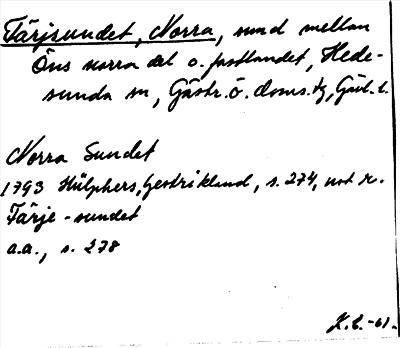 Färjsundet, Norra, sund mellan
Öns norra del o. fastlandet, Hede-
sunda sn, Gästr. ö. doms. tg, Gävl. l.
Norra Sundet
1793 Hülphers, Gestrikland, s. 274, not r.
Färje-sundet
a.a., s. 278
K.E. -61.